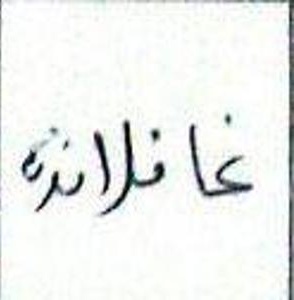 غافلانه